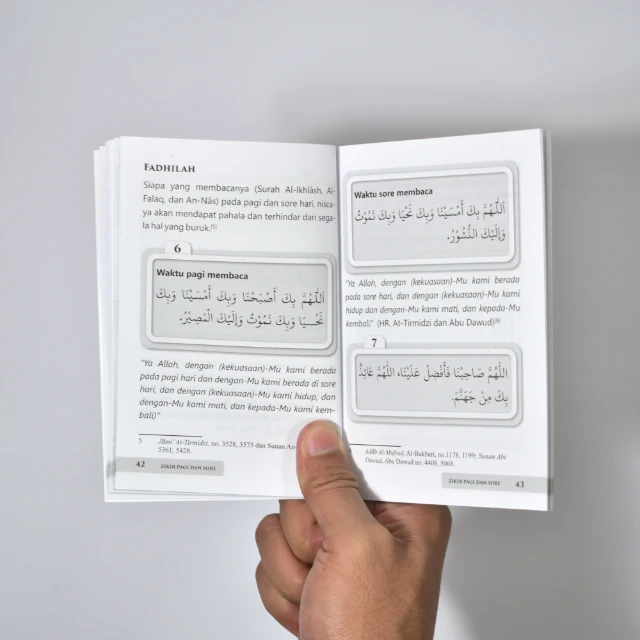 FADHILAH
Siapa yang membacanya (Surah Al-Ikhlâsh, Al-
Falaq, dan An-Nâs) pada pagi dan sore hari, nisca-
ya akan mendapat pahala dan terhindar dari sega-
la hal yang buruk.[5]
6
Waktu pagi membaca
اَللّٰهُمَّ بِكَ أَصْبَحْنَا وَبِكَ أَمْسَيْنَا وَبِكَ
نَحْيَا وَبِكَ نَمُوْتُ وَإِلَيْكَ الْمَصِيْرُ.
"Ya Allah, dengan (kekuasaan)-Mu kami berada
pada pagi hari dan dengan-Mu kami berada di sore
hari, dan dengan (kekuasaan)-Mu kami hidup, dan
dengan-Mu kami mati, dan kepada-Mu kami kem-
bali)"
5 At-Tirmidzi, no. 3528, 3575 dan Sunan
5361, 5428.
42 ZIKIR PAGI DAN SORE
Waktu sore membaca
اَللّٰهُمَّ بِكَ أَمْسَيْنَا وَبِكَ نَحْيَا وَبِكَ نَمُوْتُ
وَإِلَيْكَ النُّشُوْرُ.
"Ya Allah, dengan (kekuasaan)-Mu kami berada
pada sore hari, dan dengan (kekuasaan)-Mu kami
hidup dan dengan-Mu kami mati, dan kepada-Mu
kembali." (HR. At-Tirmidzi dan Abu Dawud)[6]
7
اللّٰهُمَّ صَاحِبْنَا فَأَفْضِلْ عَلَيْنَا، اللّٰهُمَّ عَائِذٌ
بِكَ مِنْ جَهَنَّمَ.
Adâb Al-Mufrad, Al-Bukhari, no.1178, 1199, Sunan Abi
Dawud, Abu Dawud no. 4408, 5068.
ZIKIR PAGI DAN SORE 43